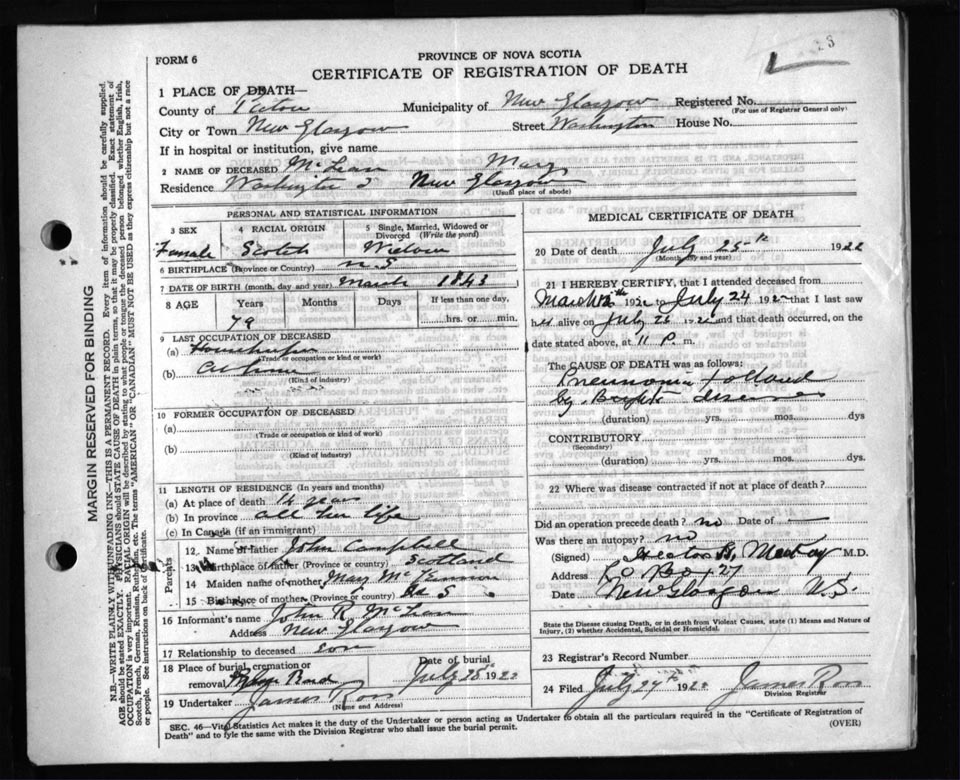 PROVINCE OF NOVA SCOTIA
FORM 6
CERTIFICATE OF REGISTRATION OF DEATH
1 PLACE OF DEATH—
County of Pictou Municipality of New Glasgow Registered No.
(For use of Registrar General only)
City or Town New Glasgow Street Washington House No.
If in hospital or institution, give name
2 NAME OF DECEASED McLean Mary
Residence Washington S New Glasgow
(Usual place of abode)
PERSONAL AND STATISTICAL INFORMATION
3 SEX Female
4 RACIAL ORIGIN Scotch
5 Single, Married, Widowed or Divorced (Write the word) Widow
6 BIRTHPLACE (Province or Country) N.S
7 DATE OF BIRTH (month, day and year) March 1843
8 AGE Years Months Days If less than one day,
79 hrs. or min.
9 LAST OCCUPATION OF DECEASED
(a) Housekeeper
(Trade or occupation or kind or work)
(b) At home
(Kind of industry)
10 FORMER OCCUPATION OF DECEASED
(a)
(Trade or occupation or kind or work)
(b)
(Kind of industry)
11 LENGTH OF RESIDENCE (In years and months)
(a) At place of death 14 years
(b) In province all her life
(c) In Canada (if an immigrant)
Parents
12. Name of father John Campbell
13 Birthplace of father (Province or country) Scotland
14 Maiden name of mother Mary McKinnon
15 Birthplace of mother (Province or country)
16 Informant's name John R. McLean
Address New Glasgow
17 Relationship to deceased son
18 Place of burial, cremation or removal Road
Date of burial July 28th 1922
19 Undertaker James Ross
(Name and Address)
MEDICAL CERTIFICATE OF DEATH
20 Date of death July 25th 1922
(Month, day and year)
21 I HEREBY CERTIFY, that I attended deceased from
March 1922 to July 24 1922 that I last saw
her alive on July 25 1922 and that death occurred, on the
date stated above, at 11 P. m.
The CAUSE OF DEATH was as follows:
Pneumonia followed
by Bright's disease
(duration) yrs. mos. dys
CONTRIBUTORY
(Secondary)
(duration) yrs. mos. dys.
22 Where was disease contracted if not at place of death?
Did an operation precede death? no Date of —
Was there an autopsy? no
(Signed) Hector B. McKay M.D.
Address P.O Box 27
Date New Glasgow N.S.
State the Disease causing Death, or in death from Violent Causes, state (1) Means and Nature of
Injury, (2) whether Accidental, Suicidal or Homicidal.
23 Registrar's Record Number
24 Filed July 27th 1922 James Ross
Division Registrar
SEC. 46—Vital Statistics Act makes it the duty of the Undertaker or person acting as Undertaker to obtain all the particulars required in the "Certificate of Registration of
Death" and to fyle the same with the Division Registrar who shall issue the burial permit. (OVER)
MARGIN RESERVED FOR BINDING
N.B.—WRITE PLAINLY WITH UNFADING INK—THIS IS A PERMANENT RECORD. Every item of information should be carefully supplied.
AGE should be stated EXACTLY. PHYSICIANS should STATE CAUSE OF DEATH in plain terms, so that it may be properly classified. Exact statement of
OCCUPATION is very important. RACIAL ORIGIN will be described by stating to what people or tongue the deceased person belonged whether English, Irish,
Scotch, French, German, Russian, Ruthenian, etc. The terms "AMERICAN" OR "CANADIAN" MUST NOT BE USED as they express citizenship but not a race
or people. See instructions on back of certificate.